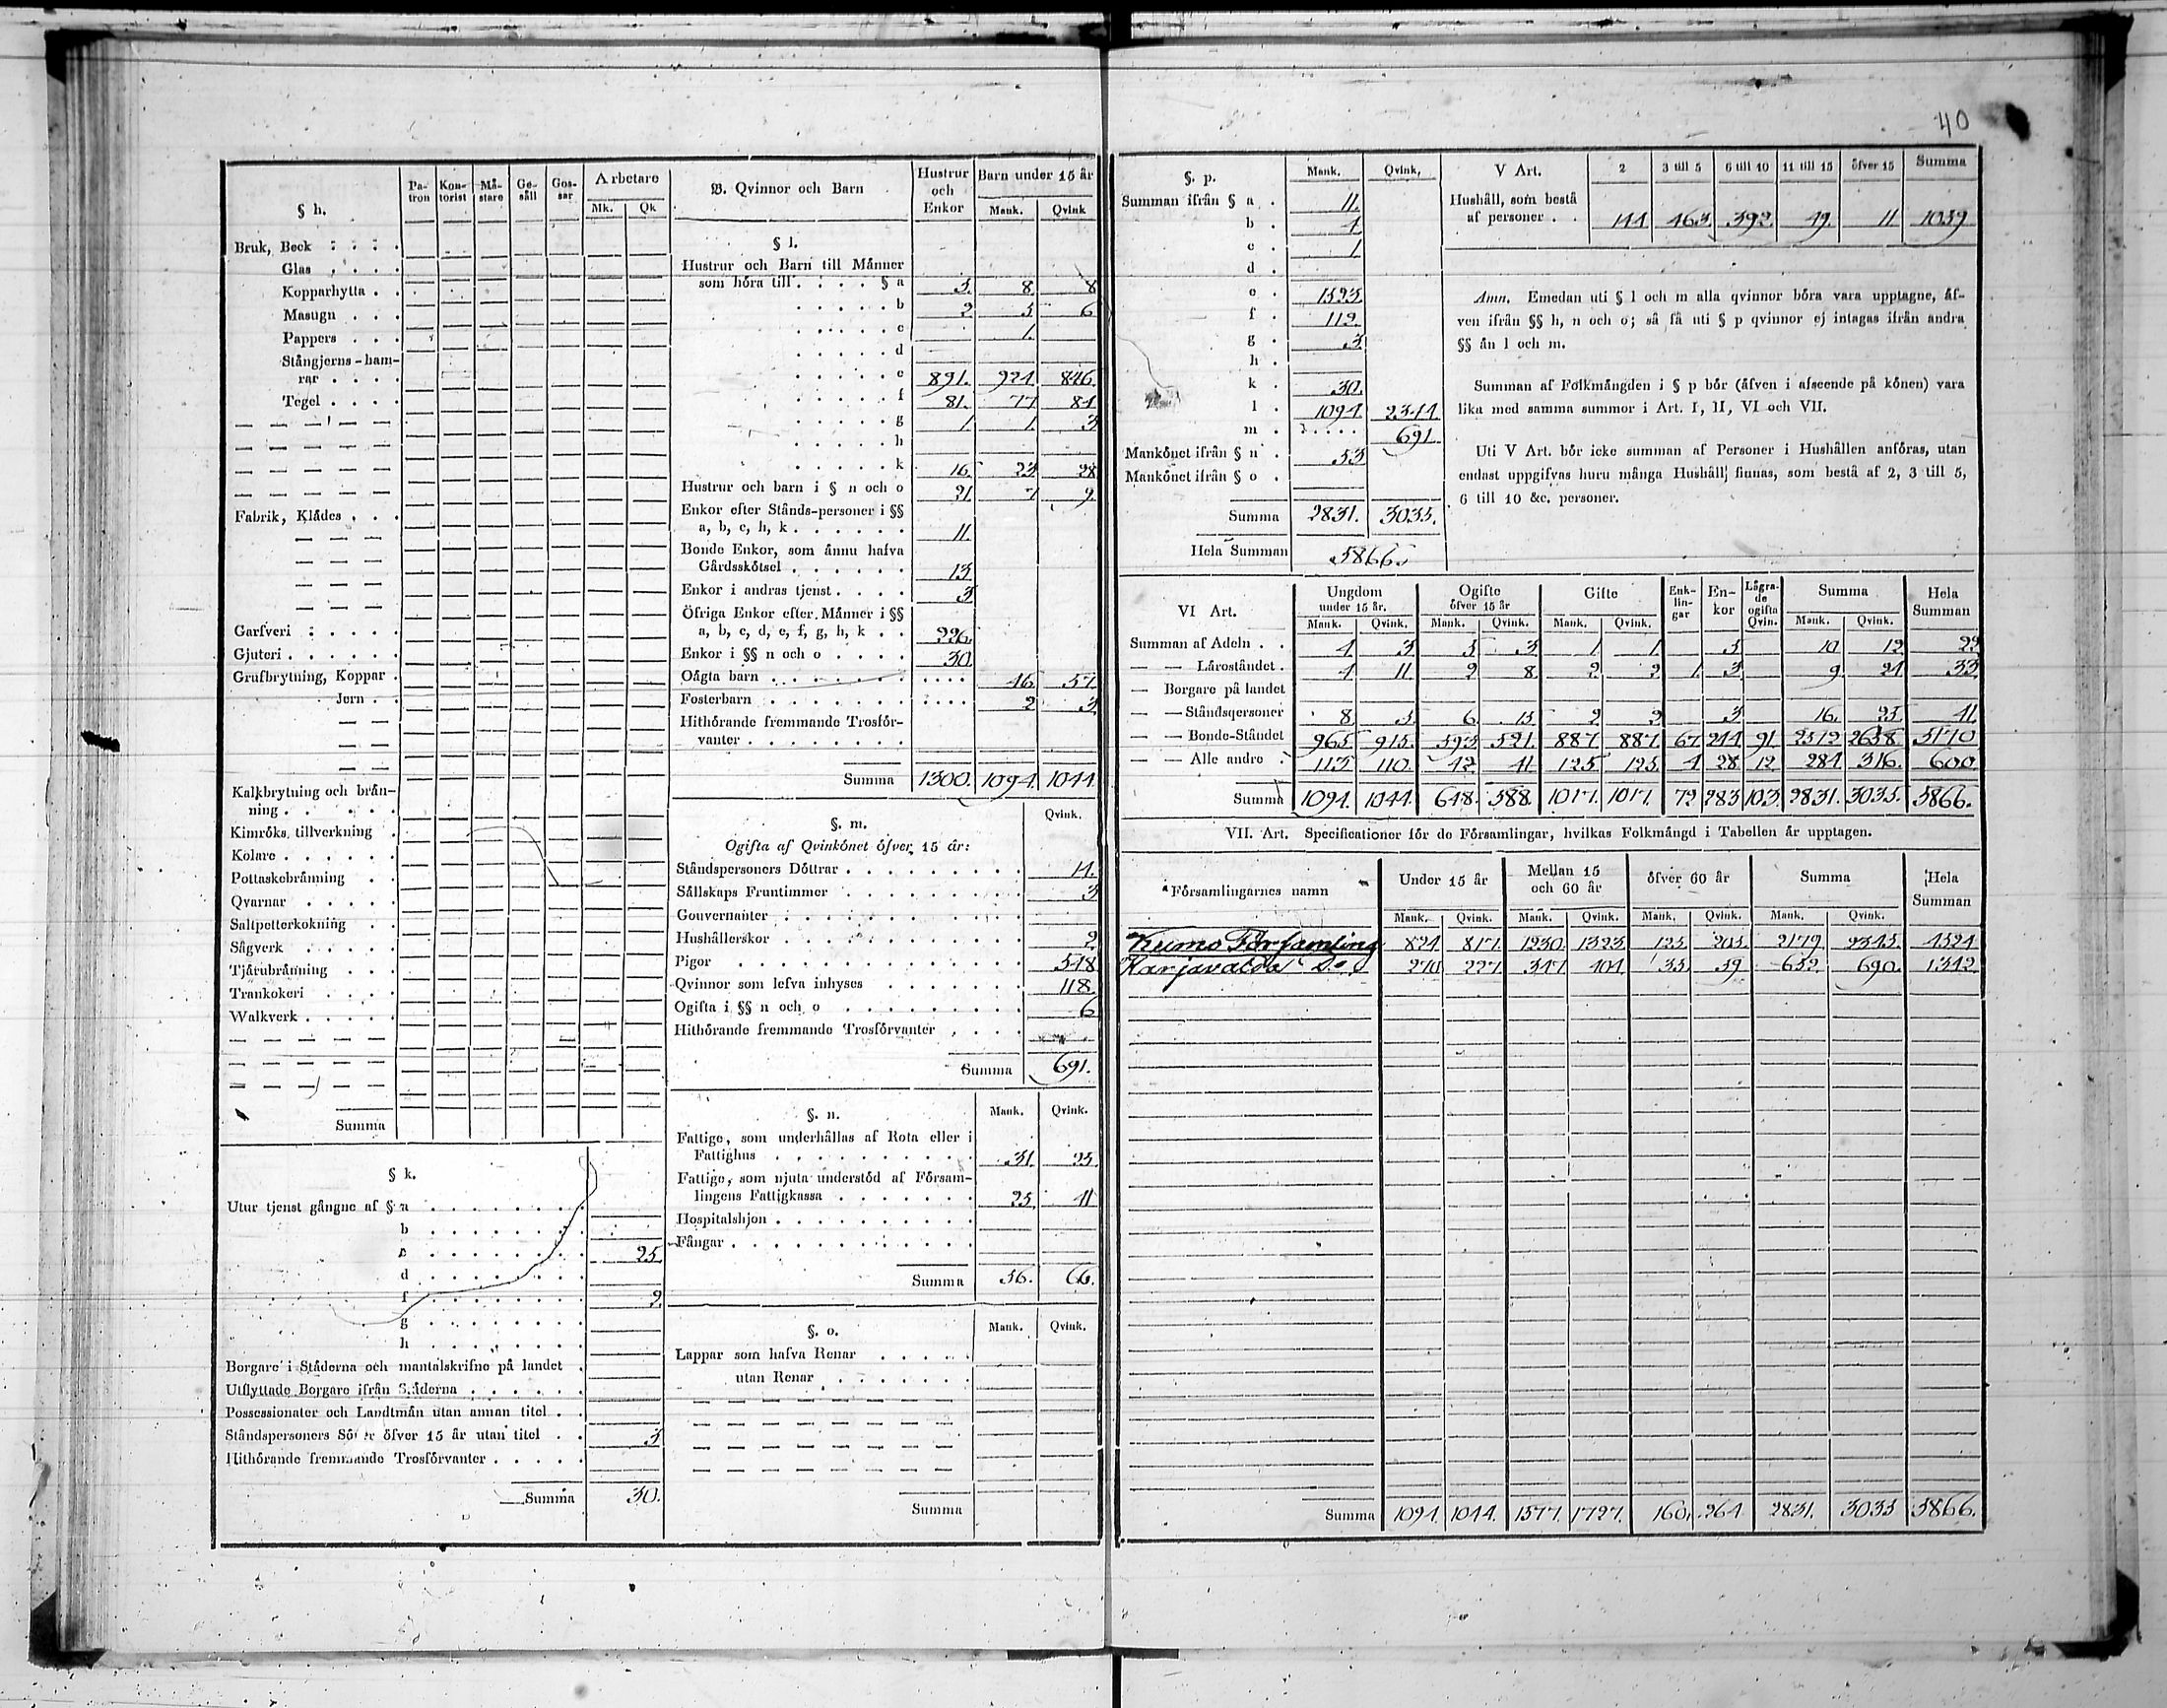 40
§ h.
Pa-tron Kon-torist Må-stare Ge-säll Gos-sar Arbetare
Mk. Qk
Bruk, Beck
Glas
Kopparhytta
Masugn
Pappers
Stångjerns-ham-
rar
Tegel
Fabrik, Klädes
Garfveri
Gjuteri
Grufbrytning, Koppar
Jern
Kalkbrytning och brän-
ning
Kimröks tillverkning
Kolare
Pottaskebränning
Qvarnar
Saltpetterkokning
Sågverk
Tjärubränning
Trankokeri
Walkverk
Summa
§ k.
Utur tjenst gångne af § a
b
c 25
d
f 2
g
h
Borgare i Städerna och mantalskrifne på landet
Utflyttade Borgare ifrån Städerna
Possessionater och Landtmän utan annan titel
Ståndspersoners Söner öfver 15 år utan titel 3
Hithörande fremmande Trosförvanter
Summa 30.
B. Qvinnor och Barn Hustrur och Enkor Barn under 15 år
Mank. Qvink
§ l.
Hustrur och Barn till Männer
som höra till § a 5 8 8
b 2 5 6
c 1.
d
e 891. 924 846
f 81. 77 84
g 1 1. 3
h
k 16. 23 28
Hustrur och barn i § n och o 21 7 9
Enkor efter Stånds-personer i §§
a, b, c, h, k 11.
Bonde Enkor, som ännu hafva
Gårdsskötsel 13
Enkor i andras tjenst 3
Öfriga Enkor efter Männer i §§
a, b, c, d, e, f, g, h, k 226.
Enkor i §§ n och o 30
Oägta barn 46 57
Fosterbarn 2 3
Hithörande fremmande Trosför-
vanter
Summa 1300. 1094. 1044
§. m. Qvink.
Ogifta af Qvinkönet öfver 15 år:
Ståndspersoners Döttrar 14.
Sällskaps Fruntimmer 3
Gouvernanter
Hushållerskor 2
Pigor 548
Qvinnor som lefva inhyses 118
Ogifta i §§ n och o 6
Hithörande fremmande Trosförvanter
Summa 691.
§. n. Mank. Qvink.
Fattige, som underhållas af Rota eller i
Fattighus 31. 25
Fattige, som njuta understöd af Försam-
lingens Fattigkassa 25 41
Hospitalshjon
Fångar
Summa 56. 66.
§. o. Mank. Qvink.
Lappar som hafva Renar
utan Renar
Summa
§. p. Mank. Qvink,
Summan ifrån § a 11.
b 4
c 1
d
e 1523
f 112.
g 3
h
k 30.
l 1094 2344.
m 691
Mankönet ifrån § n 53
Mankönet ifrån § o
Summa 2831. 3035.
Hela Summan 5866.
V Art. 2 3 till 5 6 till 10 11 till 15 öfver 15 Summa
Hushåll, som bestå
af personer 144 463 392. 49. 11. 1059
Anm. Emedan uti § l och m alla qvinnor böra vara upptagne, äf-
ven ifrån §§ h, n och o; så få uti § p qvinnor ej intagas ifrån andra
§§ än l och m.
Summan af Folkmängden i § p bör (äfven i afseende på könen) vara
lika med samma summor i Art. I, II, VI och VII.
Uti V Art. bör icke summan af Personer i Hushållen anföras, utan
endast uppgifvas huru många Hushåll finnas, som bestå af 2, 3 till 5,
6 till 10 &c. personer.
VI Art. Ungdom under 15 år. Ogifte öfver 15 år Gifte Enk-lin-gar En-kor Lägra-de ogifta Qvin. Summa Hela Summan
Mank. Qvink. Mank. Qvink. Mank. Qvink. Mank. Qvink.
Summan af Adeln 4 3 5 3 1 1 5 10 12 22
— — Läroståndet 4 11. 2 8 2 2 1. 3 9. 24 33
— Borgare på landet
— — Ståndspersoner 8 5 6 15 2 2 3 16. 25 41.
— — Bonde-Ståndet 965 915. 593 521. 887 887. 67 244 91. 2512 2658 5170
— — Alle andre 113 110 42 41 125 125. 4 28 12 284 316. 600
Summa 1094. 1044. 648. 588. 1017. 1017. 72 283 103. 2831. 3035. 5866.
VII. Art. Specificationer för de Församlingar, hvilkas Folkmängd i Tabellen är upptagen.
Församlingarnes namn Under 15 år Mellan 15 och 60 år öfver 60 år Summa Hela Summan
Mank. Qvink. Mank. Qvink. Mank. Qvink. Mank. Qvink.
Kumo Församling 824 817. 1230. 1323 125 205 2179 2345 4524
Karjavalda Do 270 227 347 404 35 59 652 690. 1342
Summa 1094. 1044. 1577. 1727. 160. 264 2831. 3035 5866.